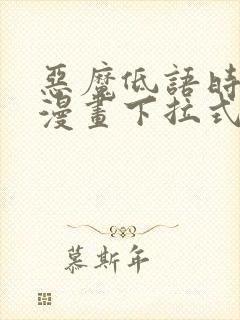 惡魔低語時
漫畫下拉式
慕斯年